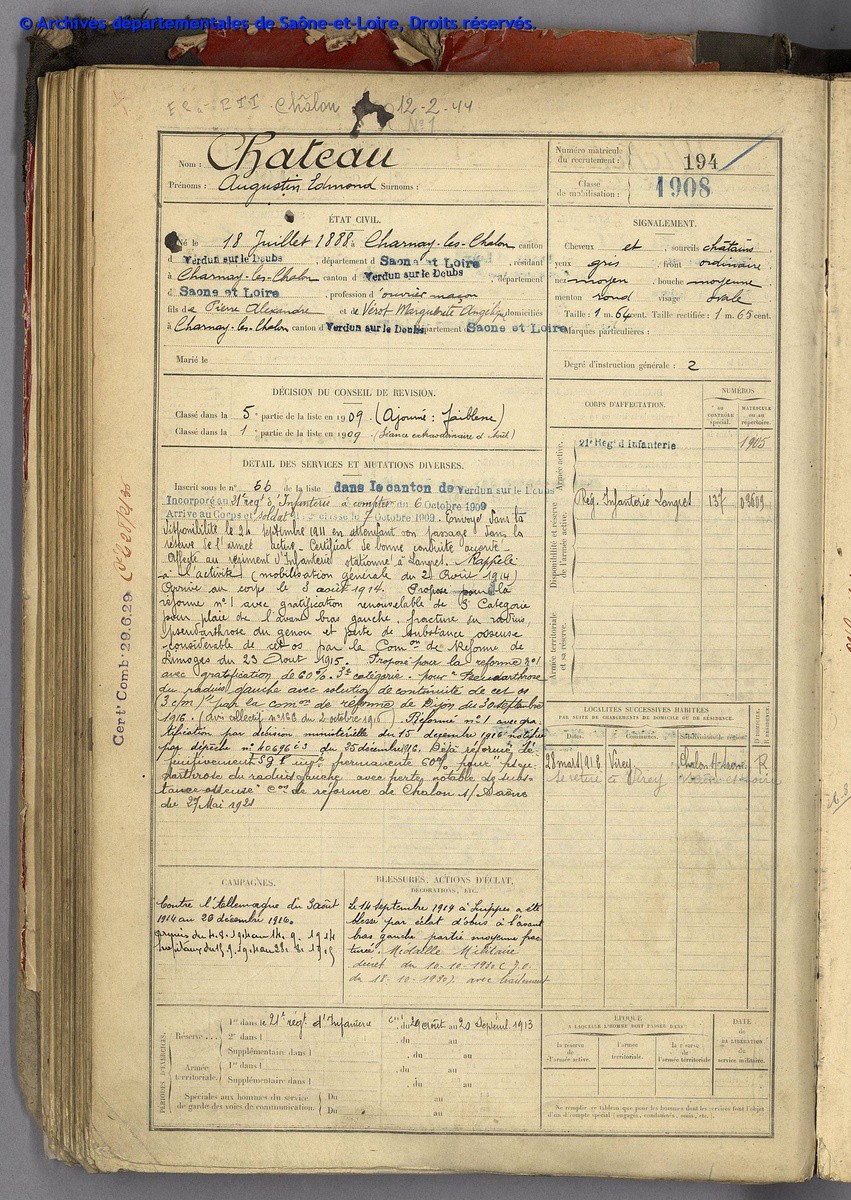 © Archives départementales de Saône-et-Loire, Droits réservés.
Châlon 12-2-44
N° 1
Nom : Chateau
Prénoms : Augustin Edmond Surnoms :
Numéro matricule du recrutement : 194
Classe de mobilisation : 1908
ÉTAT CIVIL.
Né le 18 Juillet 1888 à Charnay-les-Chalon canton
d Verdun sur le Doubs, département d Saône et Loire, résidant
à Charnay-les-Chalon canton d Verdun sur le Doubs, département
d Saône et Loire, profession d'ouvrier maçon
fils de Pierre Alexandre et de Vérot Marguerite Angélique domiciliés
à Charnay-les-Chalon canton d Verdun sur le Doubs, département d Saône et Loire
Marié le
SIGNALEMENT.
Cheveux et , sourcils châtains
yeux gris , front ordinaire
nez moyen , bouche moyenne
menton rond visage ovale
Taille : 1 m. 64 cent. Taille rectifiée : 1 m. 65 cent.
Marques particulières :
Degré d'instruction générale : 2
DÉCISION DU CONSEIL DE RÉVISION.
Classé dans la 5e partie de la liste en 1909 (Ajourné : faiblesse)
Classé dans la 1 e partie de la liste en 1909 (Séance extraordinaire d'Août)
DÉTAIL DES SERVICES ET MUTATIONS DIVERSES.
Inscrit sous le n° 66 de la liste dans le canton de Verdun sur le Doubs
Incorporé au 21e régt d'Infanterie à compter du 6 Octobre 1909
Arrivé au Corps et soldat de 2e classe le 7 Octobre 1909. Envoyé dans la
disponibilité le 24 septembre 1911 en attendant son passage dans la
réserve de l'armée active. Certificat de bonne conduite accordé.
Affecté au régiment d'Infanterie stationné à Langres. Rappelé
à l'activité (mobilisation générale du 2 Août 1914)
Arrivé au corps le 3 août 1914. Proposé pour la
réforme n° 1 avec gratification renouvelable de 5e Catégorie
pour plaie de l'avant bras gauche, fracture du radius,
pseudarthrose du genou et perte de substance osseuse
considérable de cet os par la Comon de Réforme de
Limoges du 23 Août 1915. Proposé pour la réforme n° 1
avec gratification de 60%. 3e catégorie. pour "Pseudarthrose
du radius gauche avec solution de continuité de cet os
(3 cm)" par la comon de réforme de Dijon du 30 septembre
1916. (avis collectif n° 166 du 2 octobre 1916). Réformé n° 1 avec gra-
tification par décision ministérielle du 15 décembre 1916 notifiée
par dépêche n° 40696 du 25 décembre 1916. Déjà réformé dé-
finitivement permanente 60% pour "pseu-
darthrose du radius gauche avec perte notable de subs-
tance osseuse" Con de réforme de Chalon s/ Saône
du 27 Mai 1921
Cert' Comb' 29.6.29
CORPS D'AFFECTATION.
NUMÉROS
AU CONTRÔLE spécial.
MATRICULE OU AU répertoire.
Armée active.
21e Régt d'Infanterie 1905
Disponibilité et réserve de l'armée active.
Rég. Infanterie Langres 137 03609
Armée territoriale et sa réserve.
LOCALITÉS SUCCESSIVES HABITÉES
PAR SUITE DE CHANGEMENTS DE DOMICILE OU DE RÉSIDENCE.
Dates. Communes. Subdivisions de région. D. DOMICILE, R. RÉSIDENCE.
28 mars 1918 Virey Chalon s/ Saône R
se retire à Virey Saône et Loire
CAMPAGNES.
Contre l'Allemagne du 3 août
1914 au 26 décembre 1916.
BLESSURES, ACTIONS D'ÉCLAT,
DÉCORATIONS, ETC.
Le 14 septembre 1914 à Suippes a été
blessé par éclat d'obus à l'avant
bras gauche partie moyenne frac-
turée. Médaille Militaire
décret du 10-10-1930 (J.O.
du 18-10-1930). avec traitement
PÉRIODES D'EXERCICES.
Réserve... 1re dans le 21e régt d'Infanterie du 29 août au 20 Septemb. 1913
2e dans l , du au
Supplémentaire dans l , du au
Armée territoriale. 1re dans l , du au
Supplémentaire dans l , du au
Spéciales aux hommes du service de garde des voies de communication. Du au
Du au
ÉPOQUE
A LAQUELLE L'HOMME DOIT PASSER DANS :
la réserve de l'armée active.
l'armée territoriale.
la réserve de l'armée territoriale
DATE de LA LIBÉRATION du service militaire.
Ne remplir ce tableau que pour les hommes dont les services font l'objet
d'un décompte spécial (engagés, condamnés, omis, etc.).